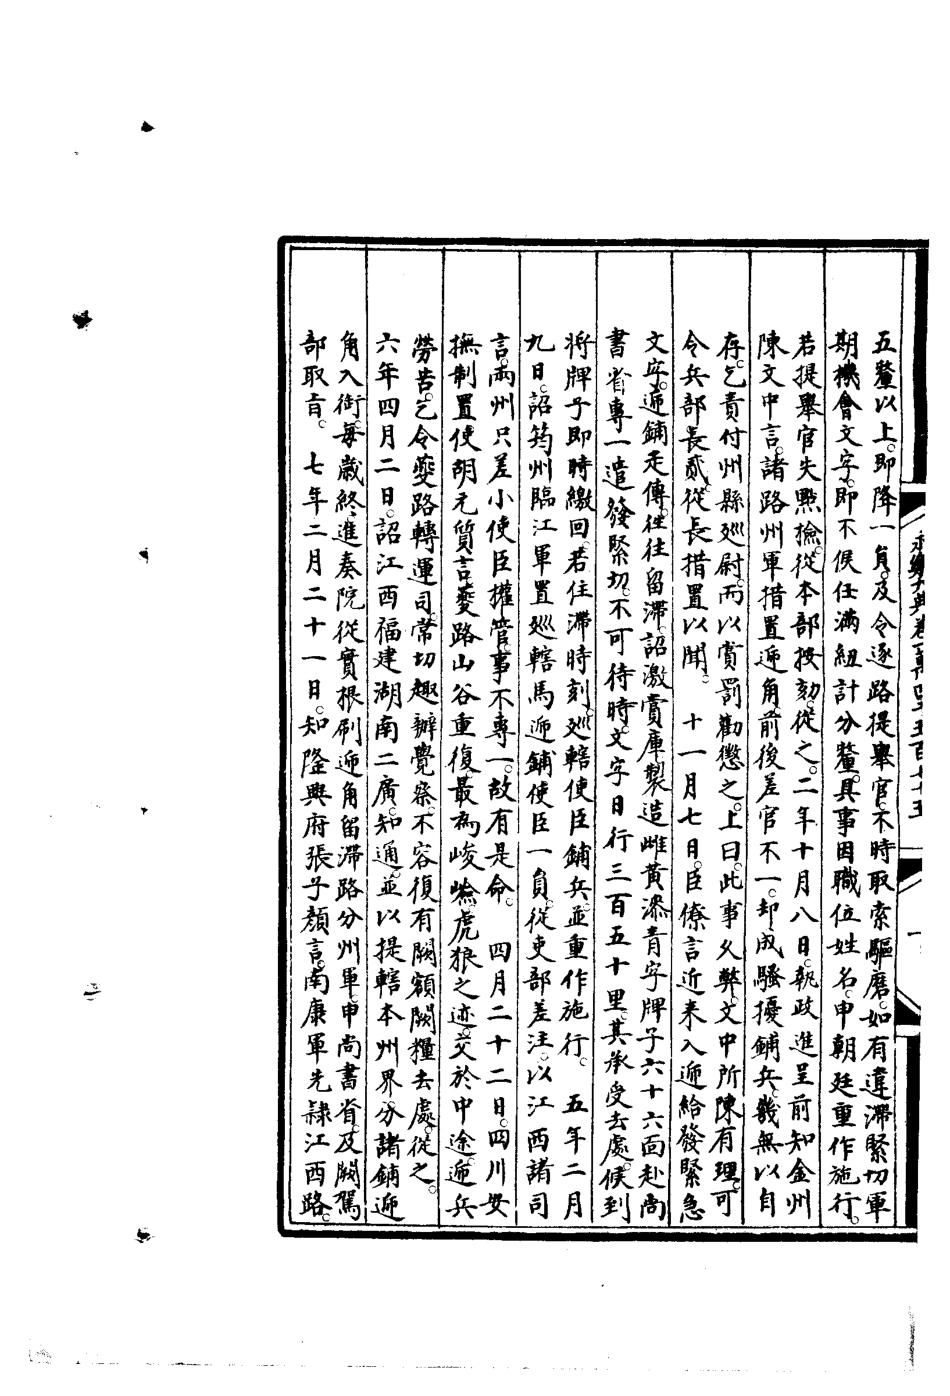 永樂大典卷一萬四千五百七十五
一
五釐以上。即降一員。及令逐路提舉官。不時取索驅磨。如有違滯緊切軍
期機會文字。即不候任滿紐計分釐。具事因職位姓名。申朝廷重作施行。
若提舉官失點檢。從本部按劾。從之。二年十月八日。執政進呈前知金州
陳文中言。諸路州軍措置遞角。前後差官不一。却成騷擾鋪兵。幾無以自
存。乞責付州縣廵尉。而以賞罰勸懲之。上曰。此事久弊。文中所陳有理。可
令兵部長貳從長措置以聞。　十一月七日。臣僚言近来入遞給發緊急
文字。遞鋪走傳。徃往留滯。詔激賞庫製造雌黃漆青字牌子六十六面赴尚
書省專一遣發緊切。不可待時。文字日行三百五十里。其承受去處。候到
將牌子即時繳回。若住滯時刻。廵轄使臣鋪兵。並重作施行。　五年二月
九日。詔筠州臨江軍置廵轄馬遞鋪使臣一員。從吏部差注。以江西諸司
言。兩州只差小使臣權管。事不專一。故有是命。　四月二十二日。四川安
撫制置使胡元質言。夔路山谷重復。最為峻嶮。虎狼之迹。交於中途。遞兵
勞苦。乞令夔路轉運司。常切趣辦覺察。不容復有闕額闕糧去處。從之。
六年四月二日。詔江西福建湖南二廣。知通。並以提轄本州界。分諸鋪遞
角入銜。每歲終。進奏院從實根刷遞角留滯路分州軍。申尚書省。及闕駕
部取旨。　七年二月二十一日。知隆興府張子顏言。南康軍先隸江西路。